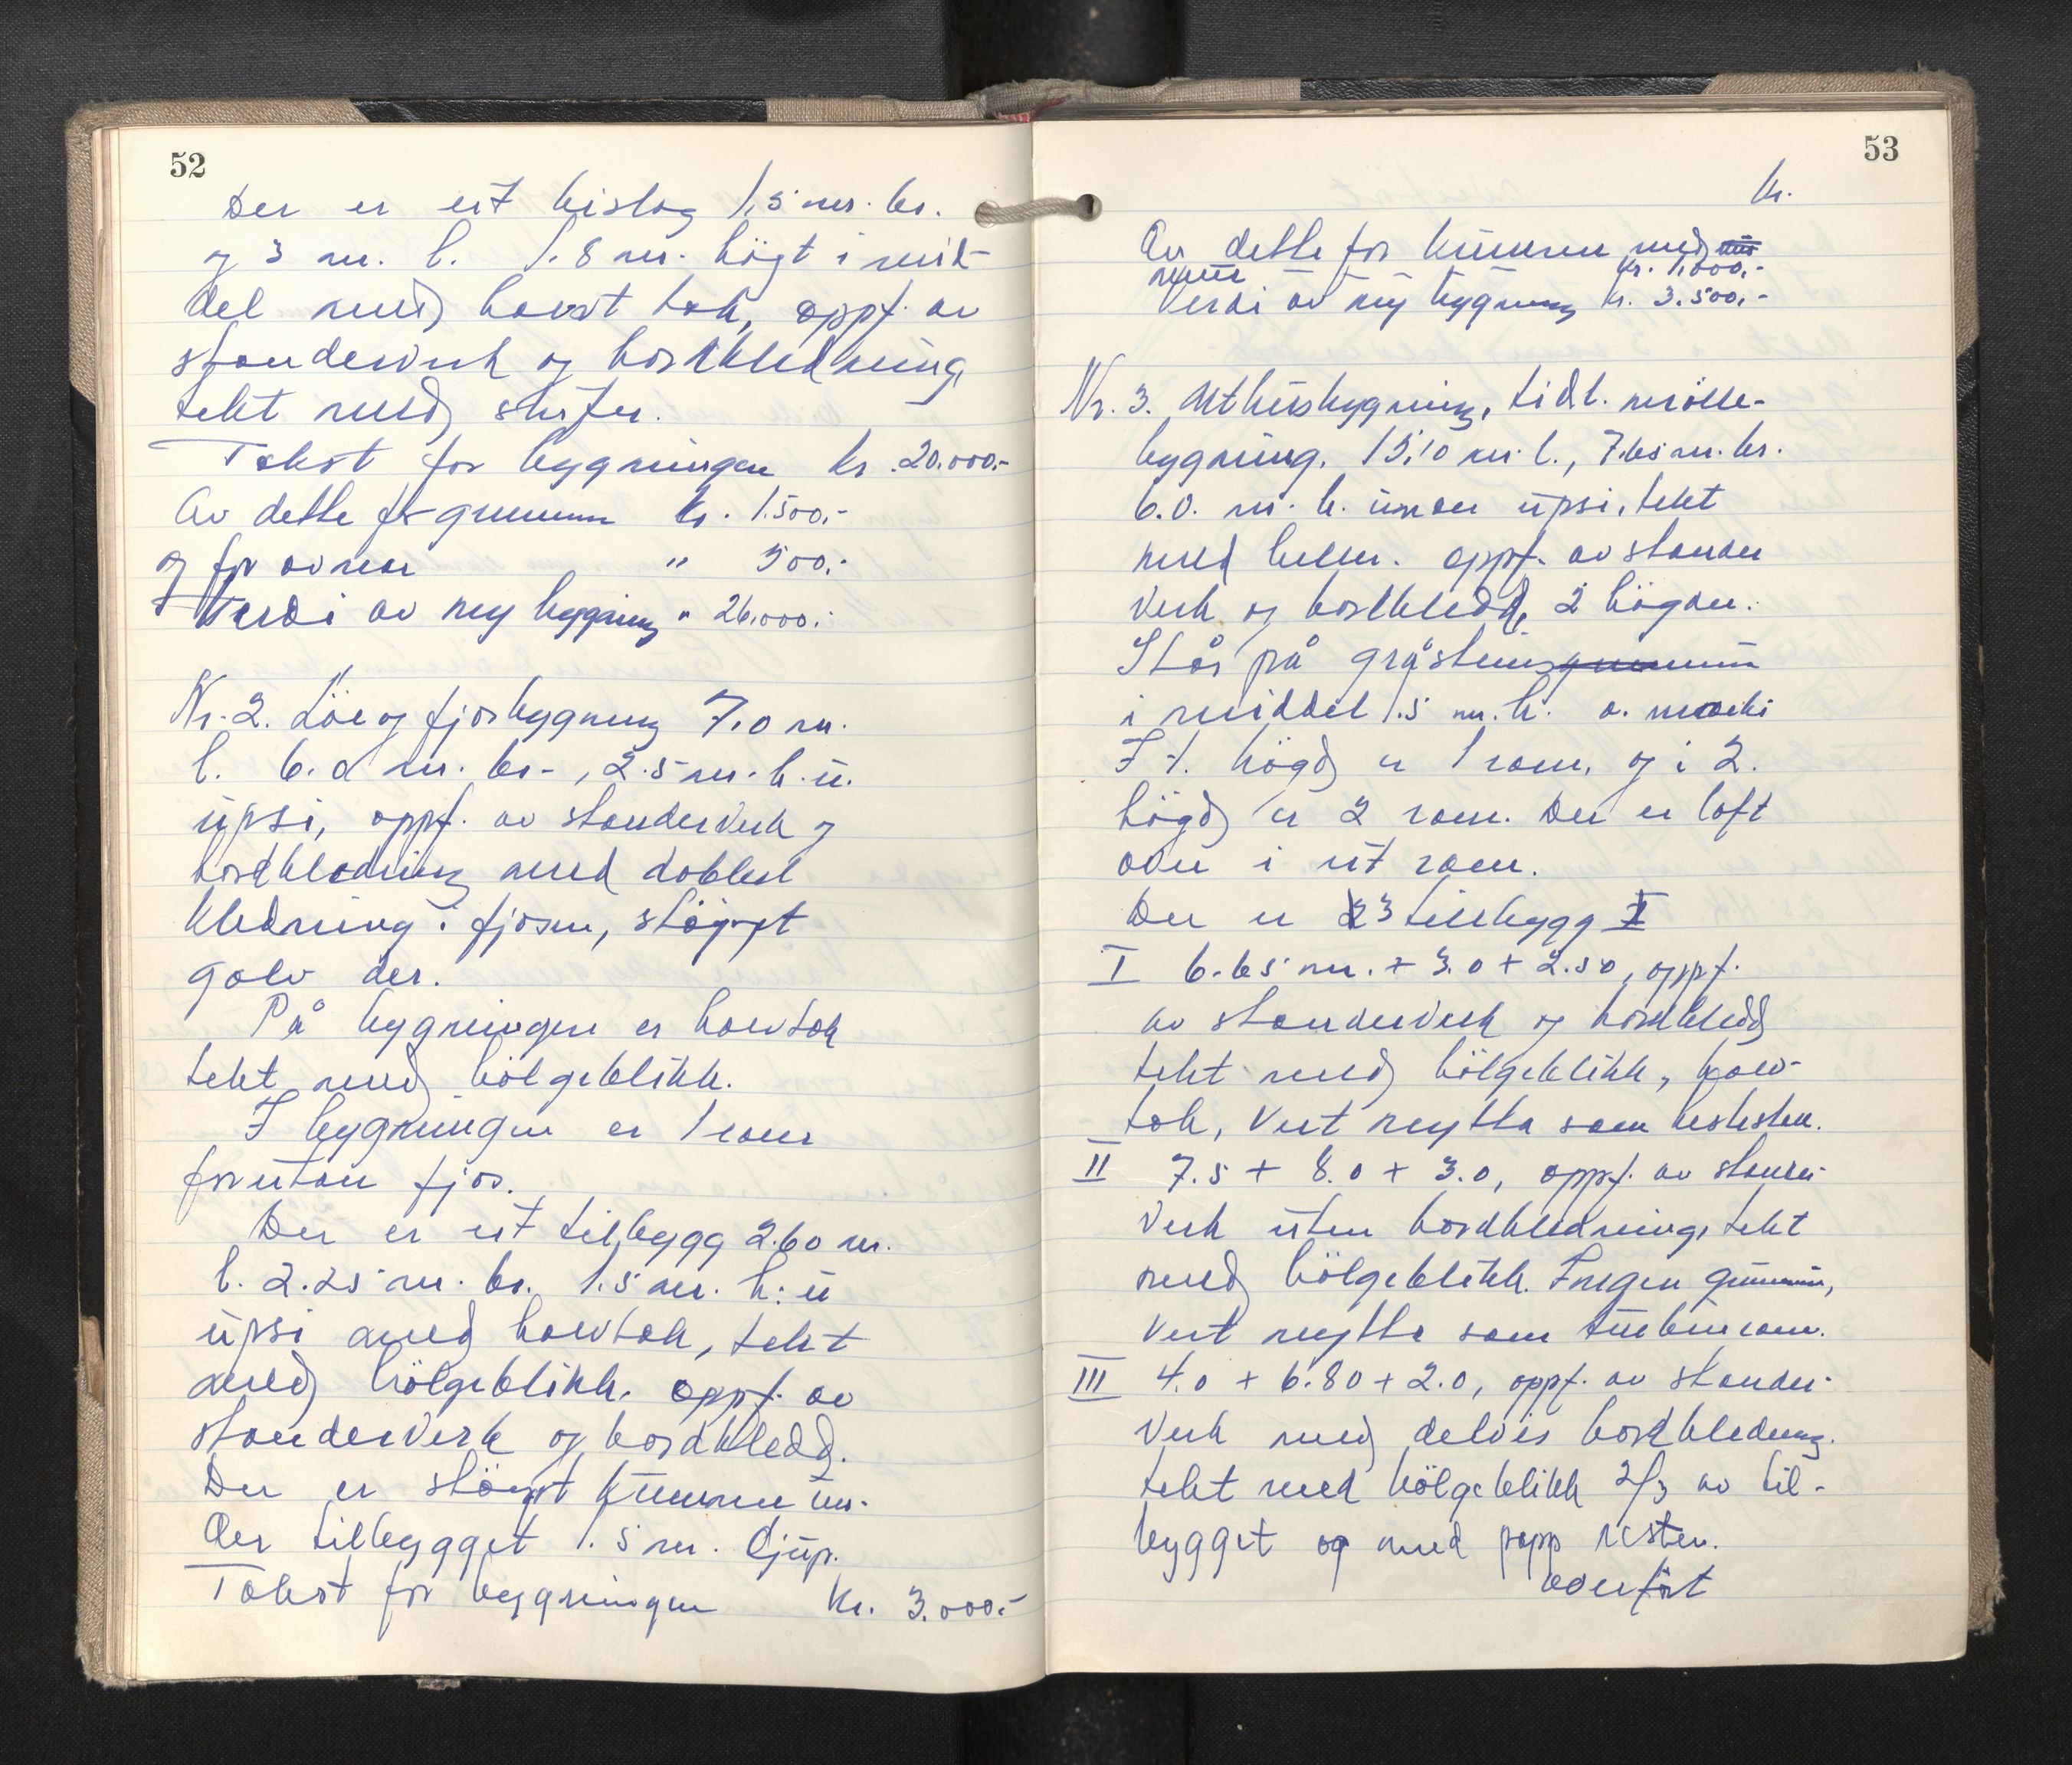 52
Der er eit bislag 1,5 m. br.
og 3 m. l. 1.8 m. högt i mid-
del med halvt tak, oppf. av
standerverk og bordkledning
tekt med skifer.
Takst for bygningen kr. 20.000.-
Av dette for grunnmur kr. 1.500.-
og for ovnar " 500.-
Verdi av ny bygning " 26.000.-
Nr. 2. Löe og fjosbygning 7.0 m.
l. 6.0 m. br., 2.5 m. h. u.
upsi, oppf. av standerverk og
bordkledning med dobbel
kledning i fjosen, stöypt
golv der.
På bygningen er halvtak
tekt med bölgeblikk.
I bygningen er 1 rom
foruten fjos.
Der er eit tilbygg 2.60 m.
l. 2.25 m. br. 1.5 m. h. u
upsi med halvtak, tekt
med bölgeblikk. oppf. av
standerverk og bordkledd.
Der er stöypt kummen un-
der tilbygget 1.5 m. djup.
Takst for bygningen kr. 3.000.-
53
kr.
Av dette for kummen med
mur kr. 1.000.-
Verdi av ny bygning kr. 3.500.-
Nr. 3. Uthusbygning, tidl. mölle-
bygning. 15,10 m. l., 7.65 m. br.
6.0. m. h. under upsi, tekt
med heller. oppf. av stander
verk og bordkledd, 2 högder.
Står på gråsteinsgrunnmur
i middel 1.5 m. h. o. marki
I 1. högd er 1 rom, og i 2.
högd er 2 rom. Der er loft
over i eit rom.
Der er 3 tilbygg I
I 6.65 m. + 3.0 + 2.50, oppf.
av standerverk og bordkledd
tekt med bölgeblikk, halv-
tak, Vert nytta som hestestall.
II 7.5 + 8.0 + 3.0, oppf. av stander-
verk uten bordkledning, tekt
med bölgeblikk. Ingen grunnmur,
vert nytta som turbinrom.
III 4.0 + 6.80 + 2.0, oppf. av stander-
verk med delvis bordkledning.
tekt med bölgeblikk 2/3 av til-
bygget og med papp resten.
overfört